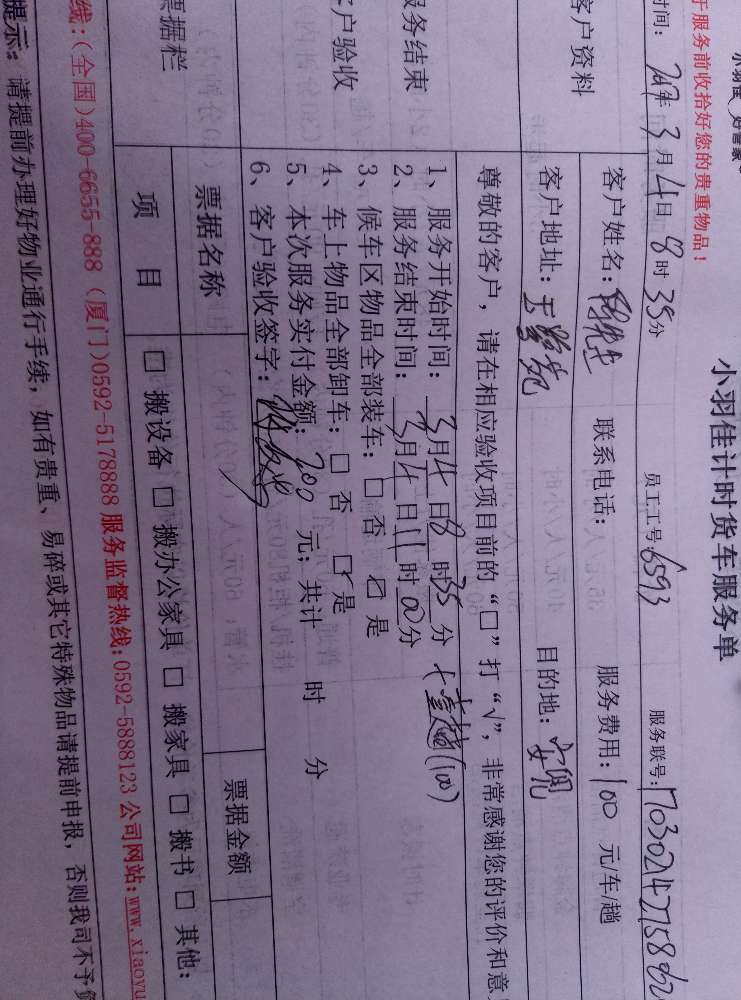 小羽佳 好管家
于服务前收拾好您的贵重物品！
小羽佳计时货车服务单
时间：2017年3月4日8时35分 员工工号6593 服务联号：
客户资料
客户姓名： 联系电话： 服务费用：100元车趟
客户地址： 目的地：
尊敬的客户，请在相应验收项目前的“□”打“√”，非常感谢您的评价和意
服务结束
客户验收
1、服务开始时间：3月4日8时35分 +壹趟(100)
2、服务结束时间：3月4日11时00分
3、候车区物品全部装车：□ 否 ☑ 是
4、车上物品全部卸车：□ 否 ☑ 是
5、本次服务实付金额：200元；共计 时 分
6、客户验收签字：
票据栏
票据名称 票据金额
项 目 □ 搬设备 □ 搬办公家具 □ 搬家具 □ 搬书 □ 其他：
线：(全国)400-6655-888（厦门)0592-5178888 服务监督热线：0592-5888123 公司网站：www.xiaoyu
提示：请提前办理好物业通行手续，如有贵重、易碎或其它特殊物品请提前申报，否则我司不予